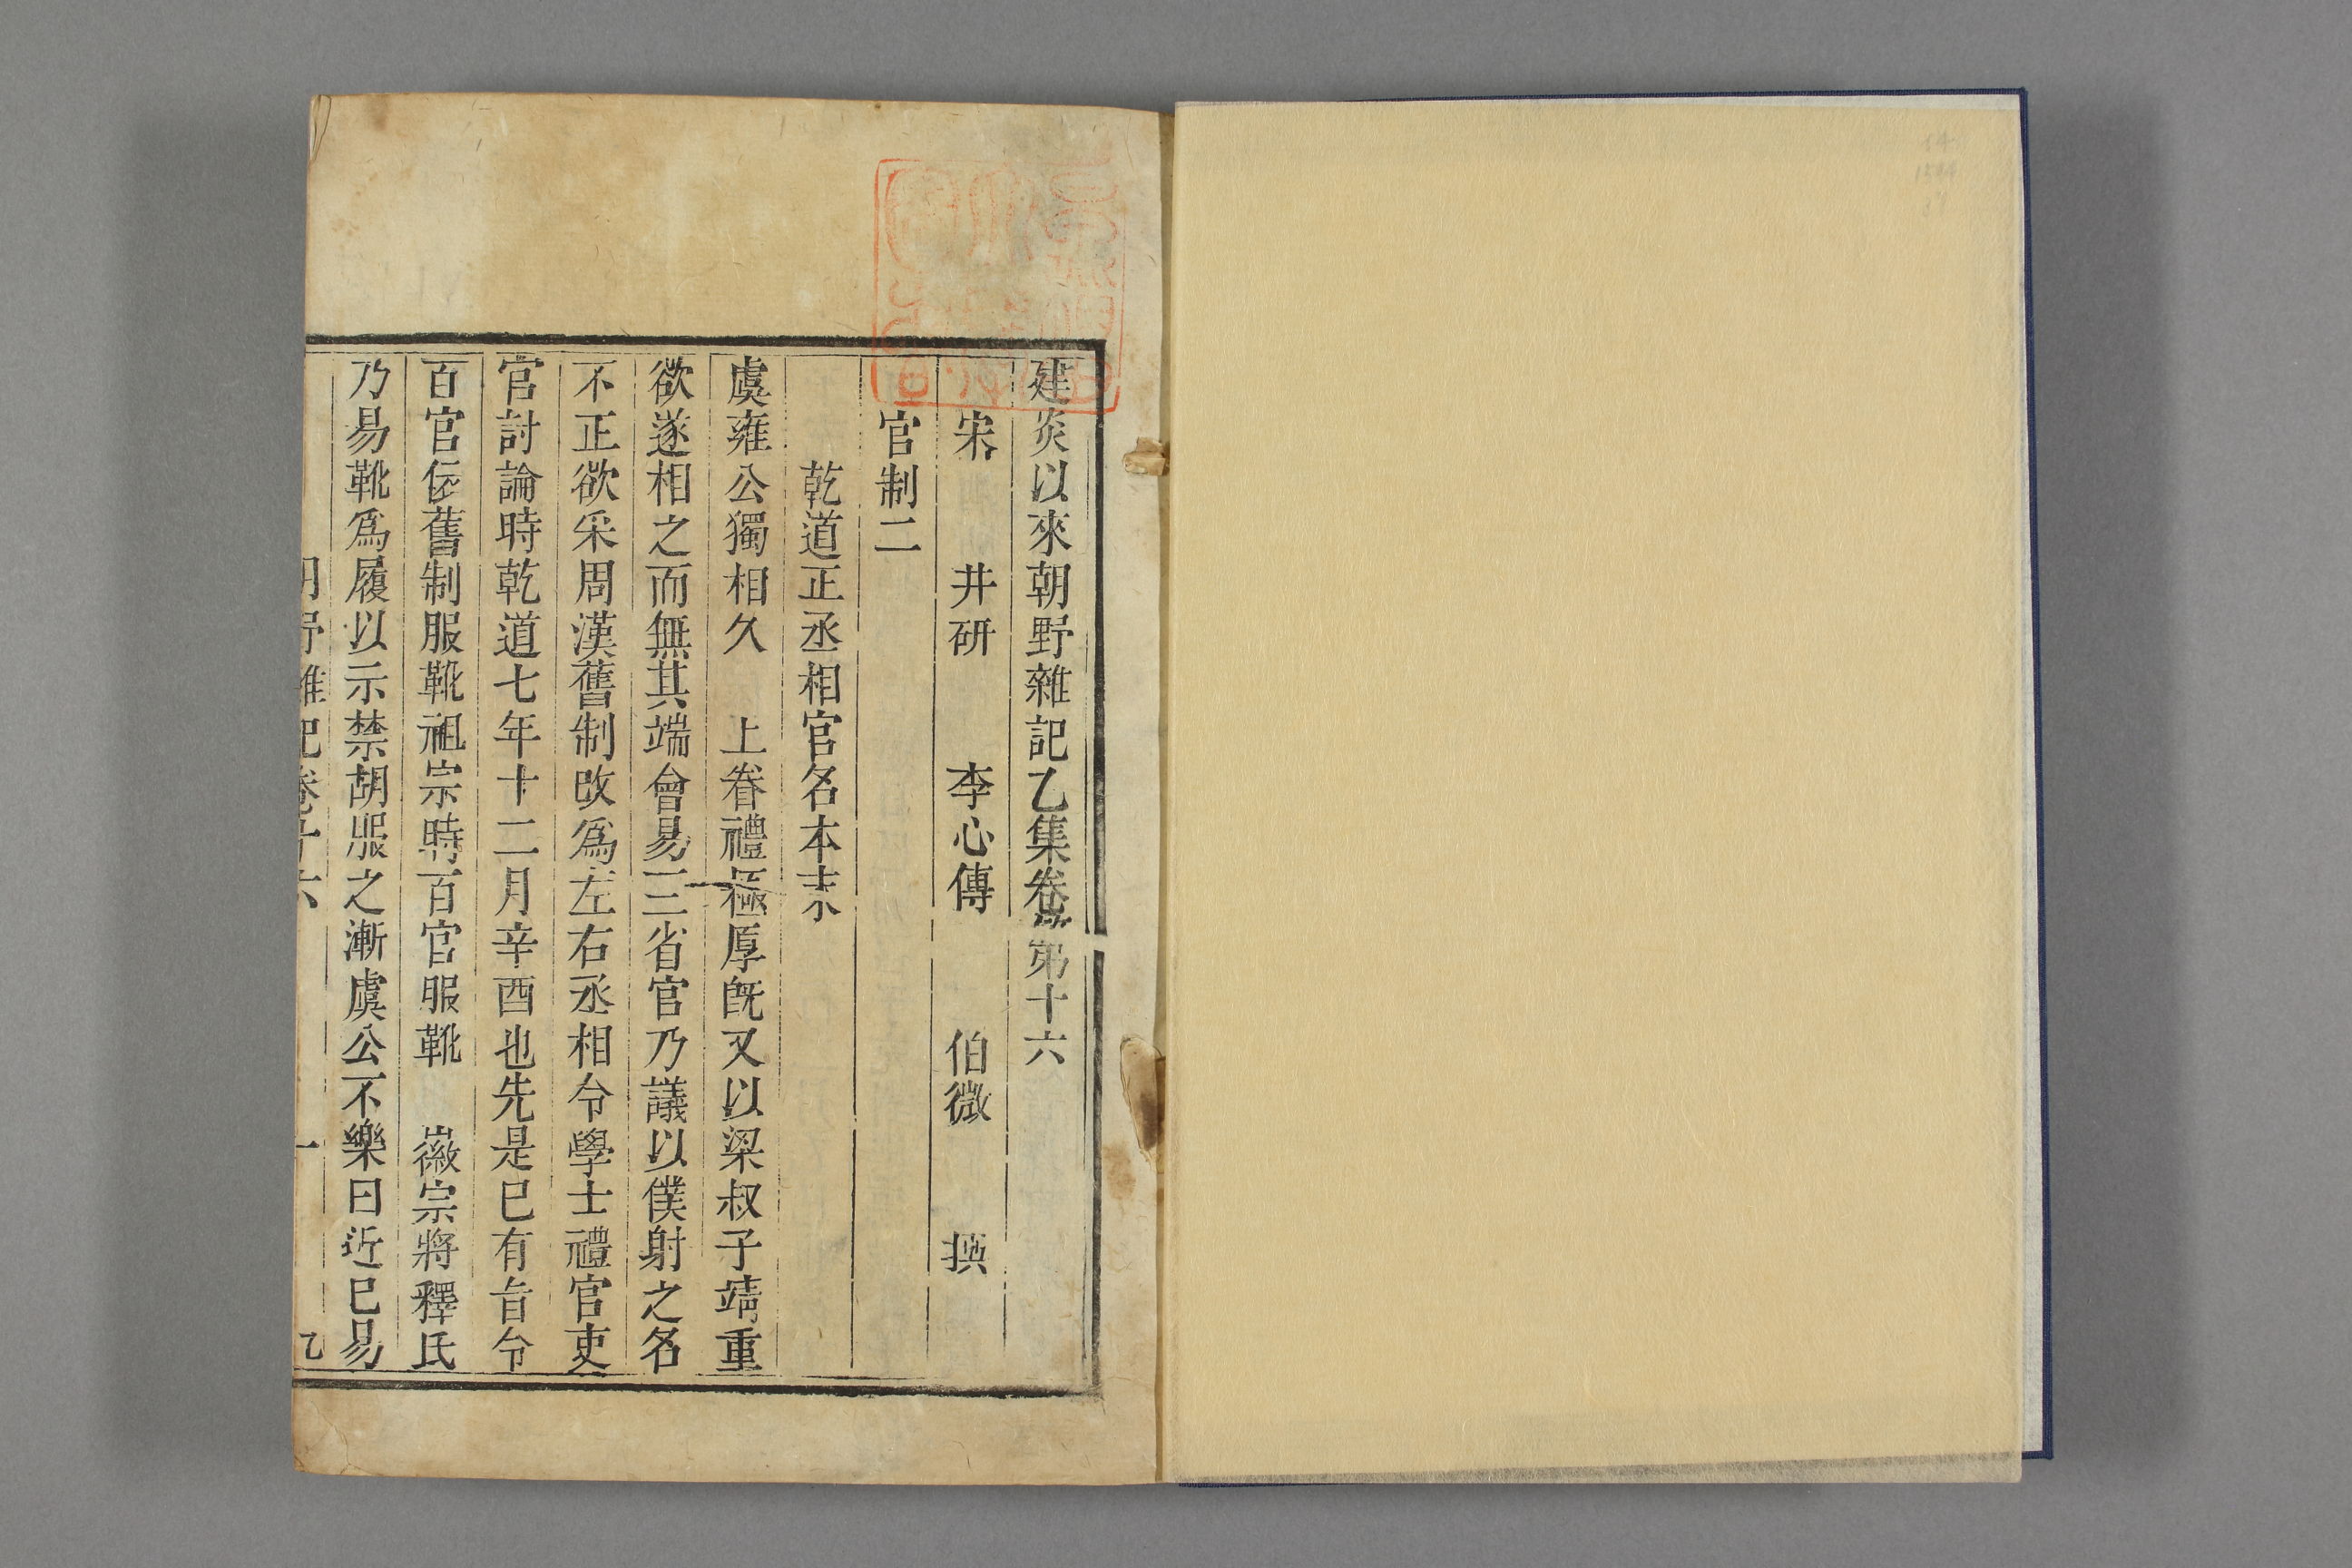 建炎以來朝野雜記乙集卷第十六
宋 井研 李心傳 伯微 撰
官制二
乾道正丞相官名本末
虞雍公獨相久 上眷禮極厚既又以梁叔子靖重
欲遂相之而無其端會易三省官乃議以僕射之名
不正欲采周漢舊制改爲左右丞相令學士禮官吏
官討論時乾道七年十二月辛酉也先是已有旨令
百官仮舊制服靴祖宗時百官服靴 徽宗將釋氏
乃易靴爲履以示禁胡服之漸虞公不樂曰近已易
朝野雜記卷十六 一 乙